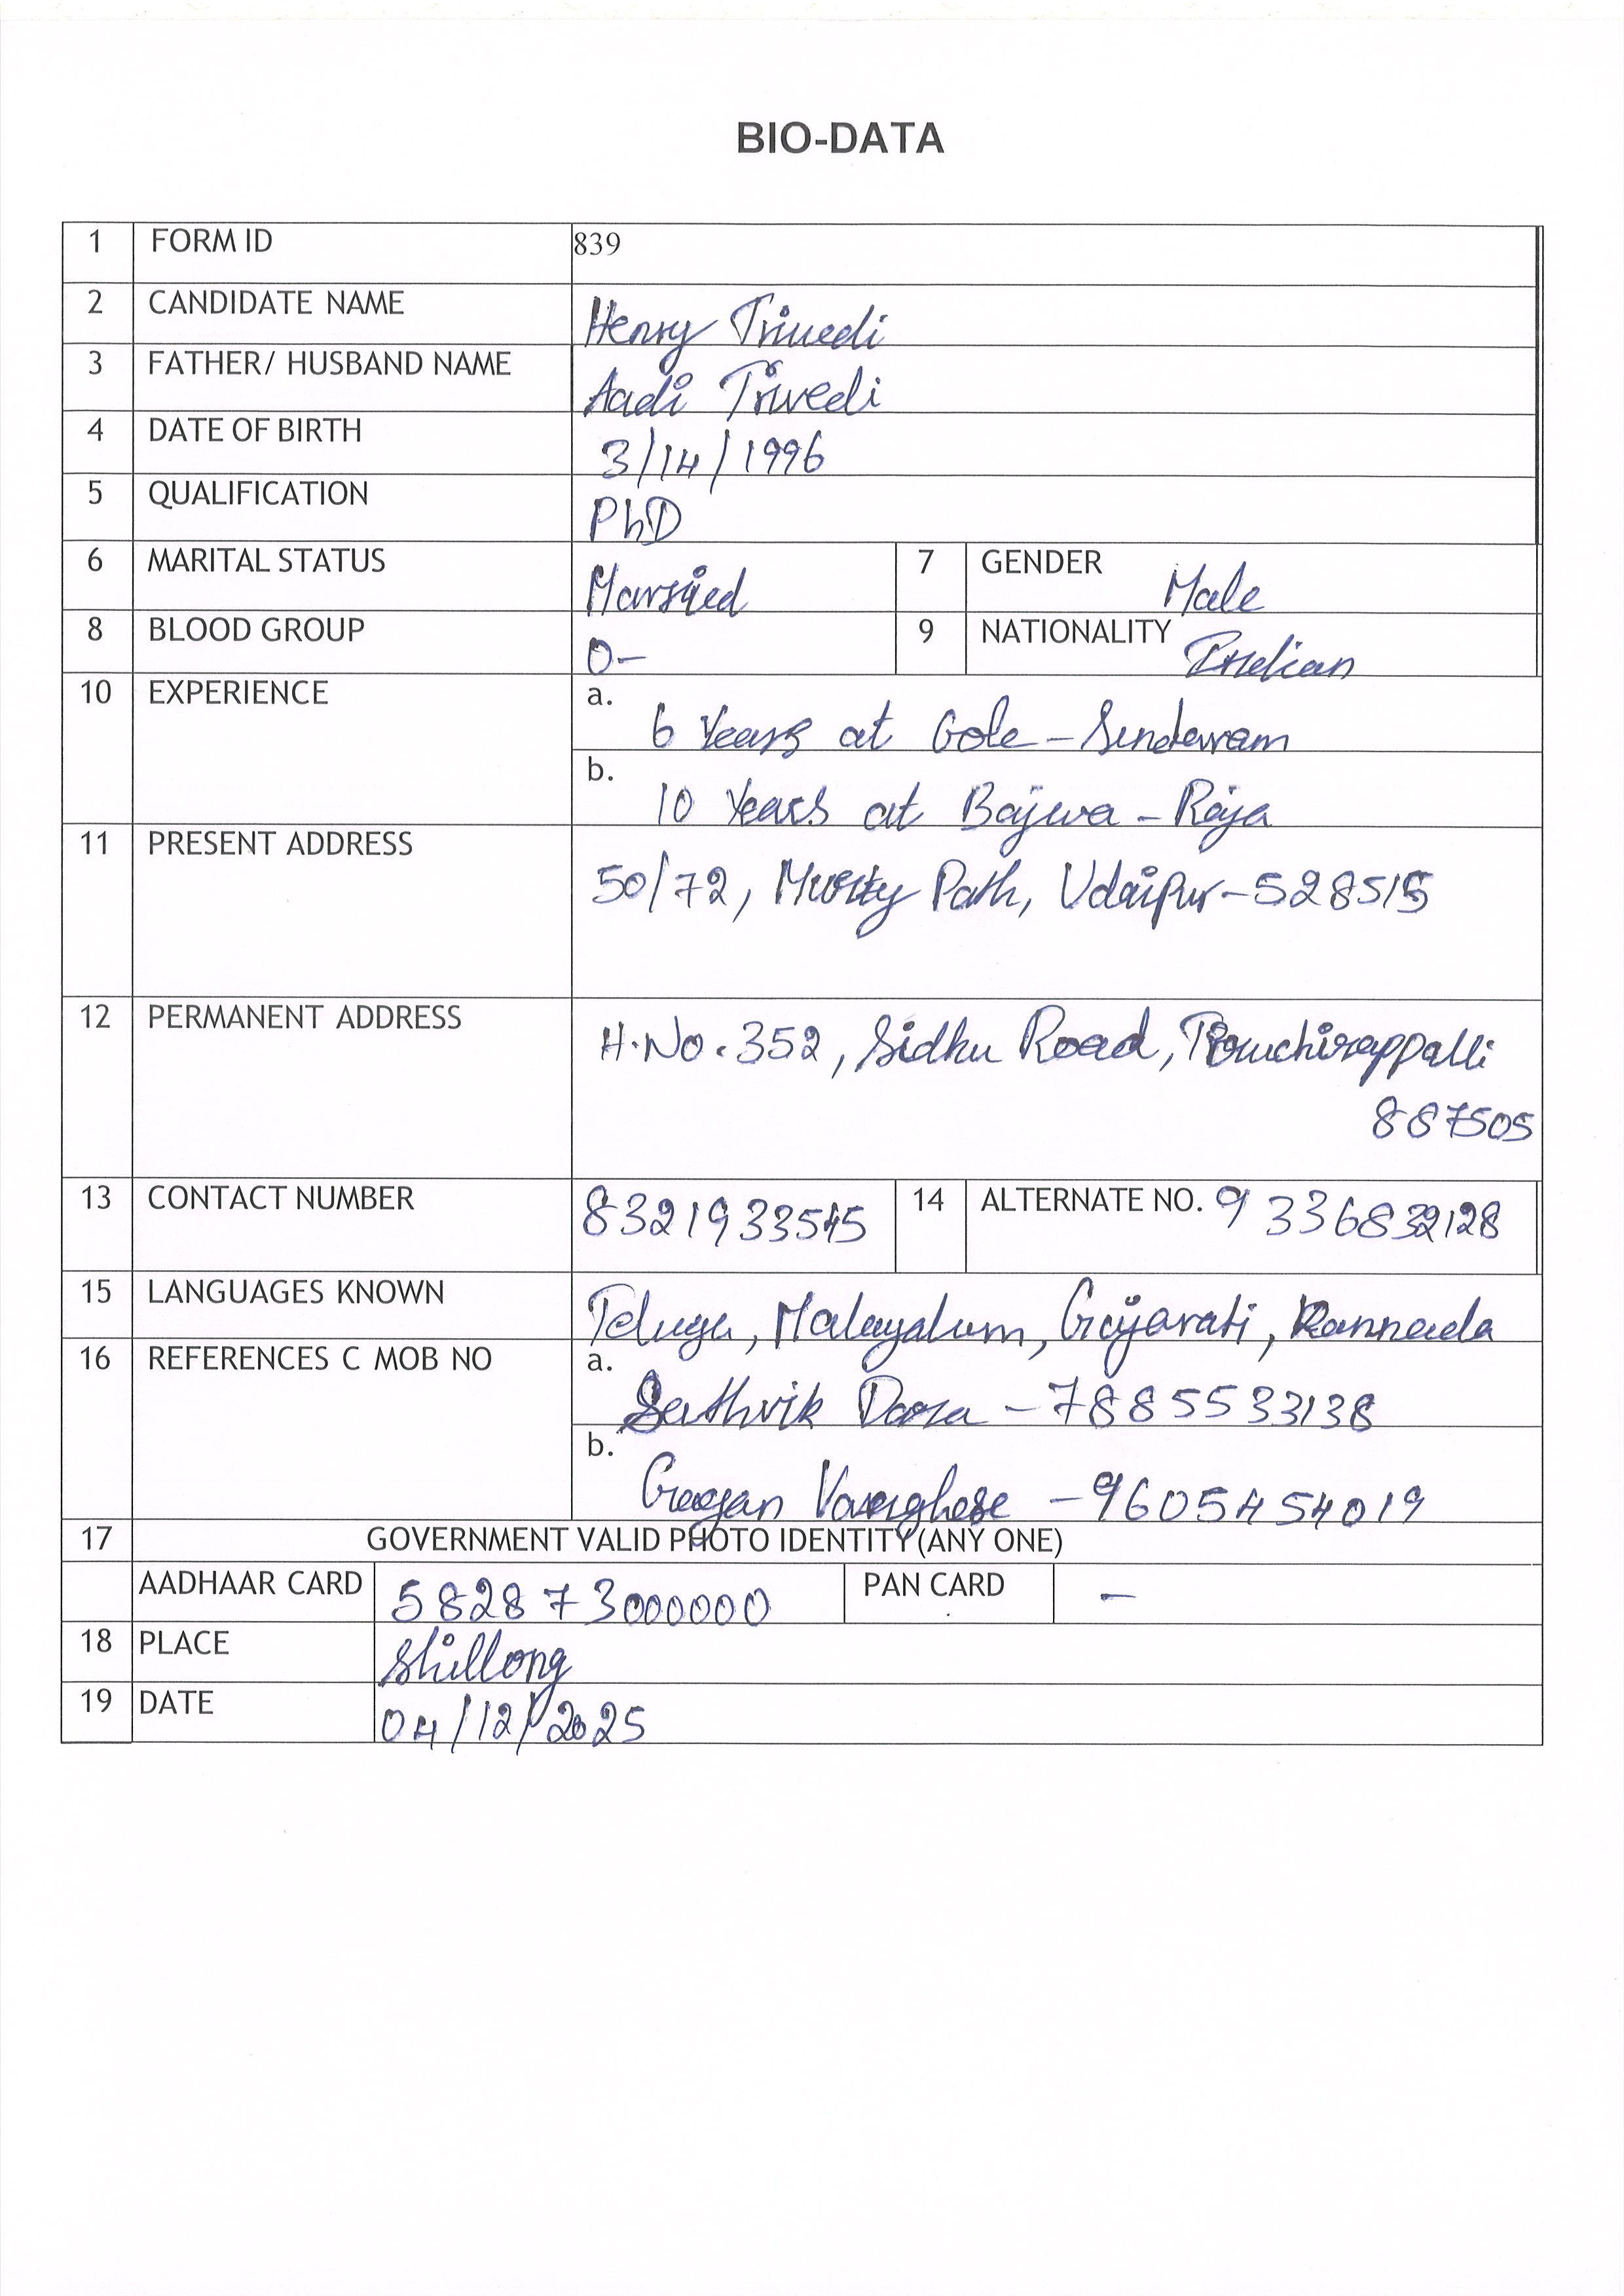 BIO-DATA
1 FORM ID 839
2 CANDIDATE NAME Henry Trivedi
3 FATHER/ HUSBAND NAME Aadi Trivedi
4 DATE OF BIRTH 3/14/1996
5 QUALIFICATION PhD
6 MARITAL STATUS Married 7 GENDER Male
8 BLOOD GROUP O- 9 NATIONALITY Indian
10 EXPERIENCE a. 6 Years at Gole - Sundaram
b. 10 Years at Bajwa - Raja
11 PRESENT ADDRESS 50/72, Murty Path, Udaipur-528515
12 PERMANENT ADDRESS H.No.352, Sidhu Road, Tiruchirappalli
887505
13 CONTACT NUMBER 8321933545 14 ALTERNATE NO. 9336832128
15 LANGUAGES KNOWN Telugu, Malayalam, Gujarati, Kannada
16 REFERENCES C MOB NO a. Sathvik - 7885533138
b. Gagan Varghese - 9605454019
17 GOVERNMENT VALID PHOTO IDENTITY(ANY ONE)
AADHAAR CARD 582873000000 PAN CARD -
18 PLACE Shillong
19 DATE 04/12/2025